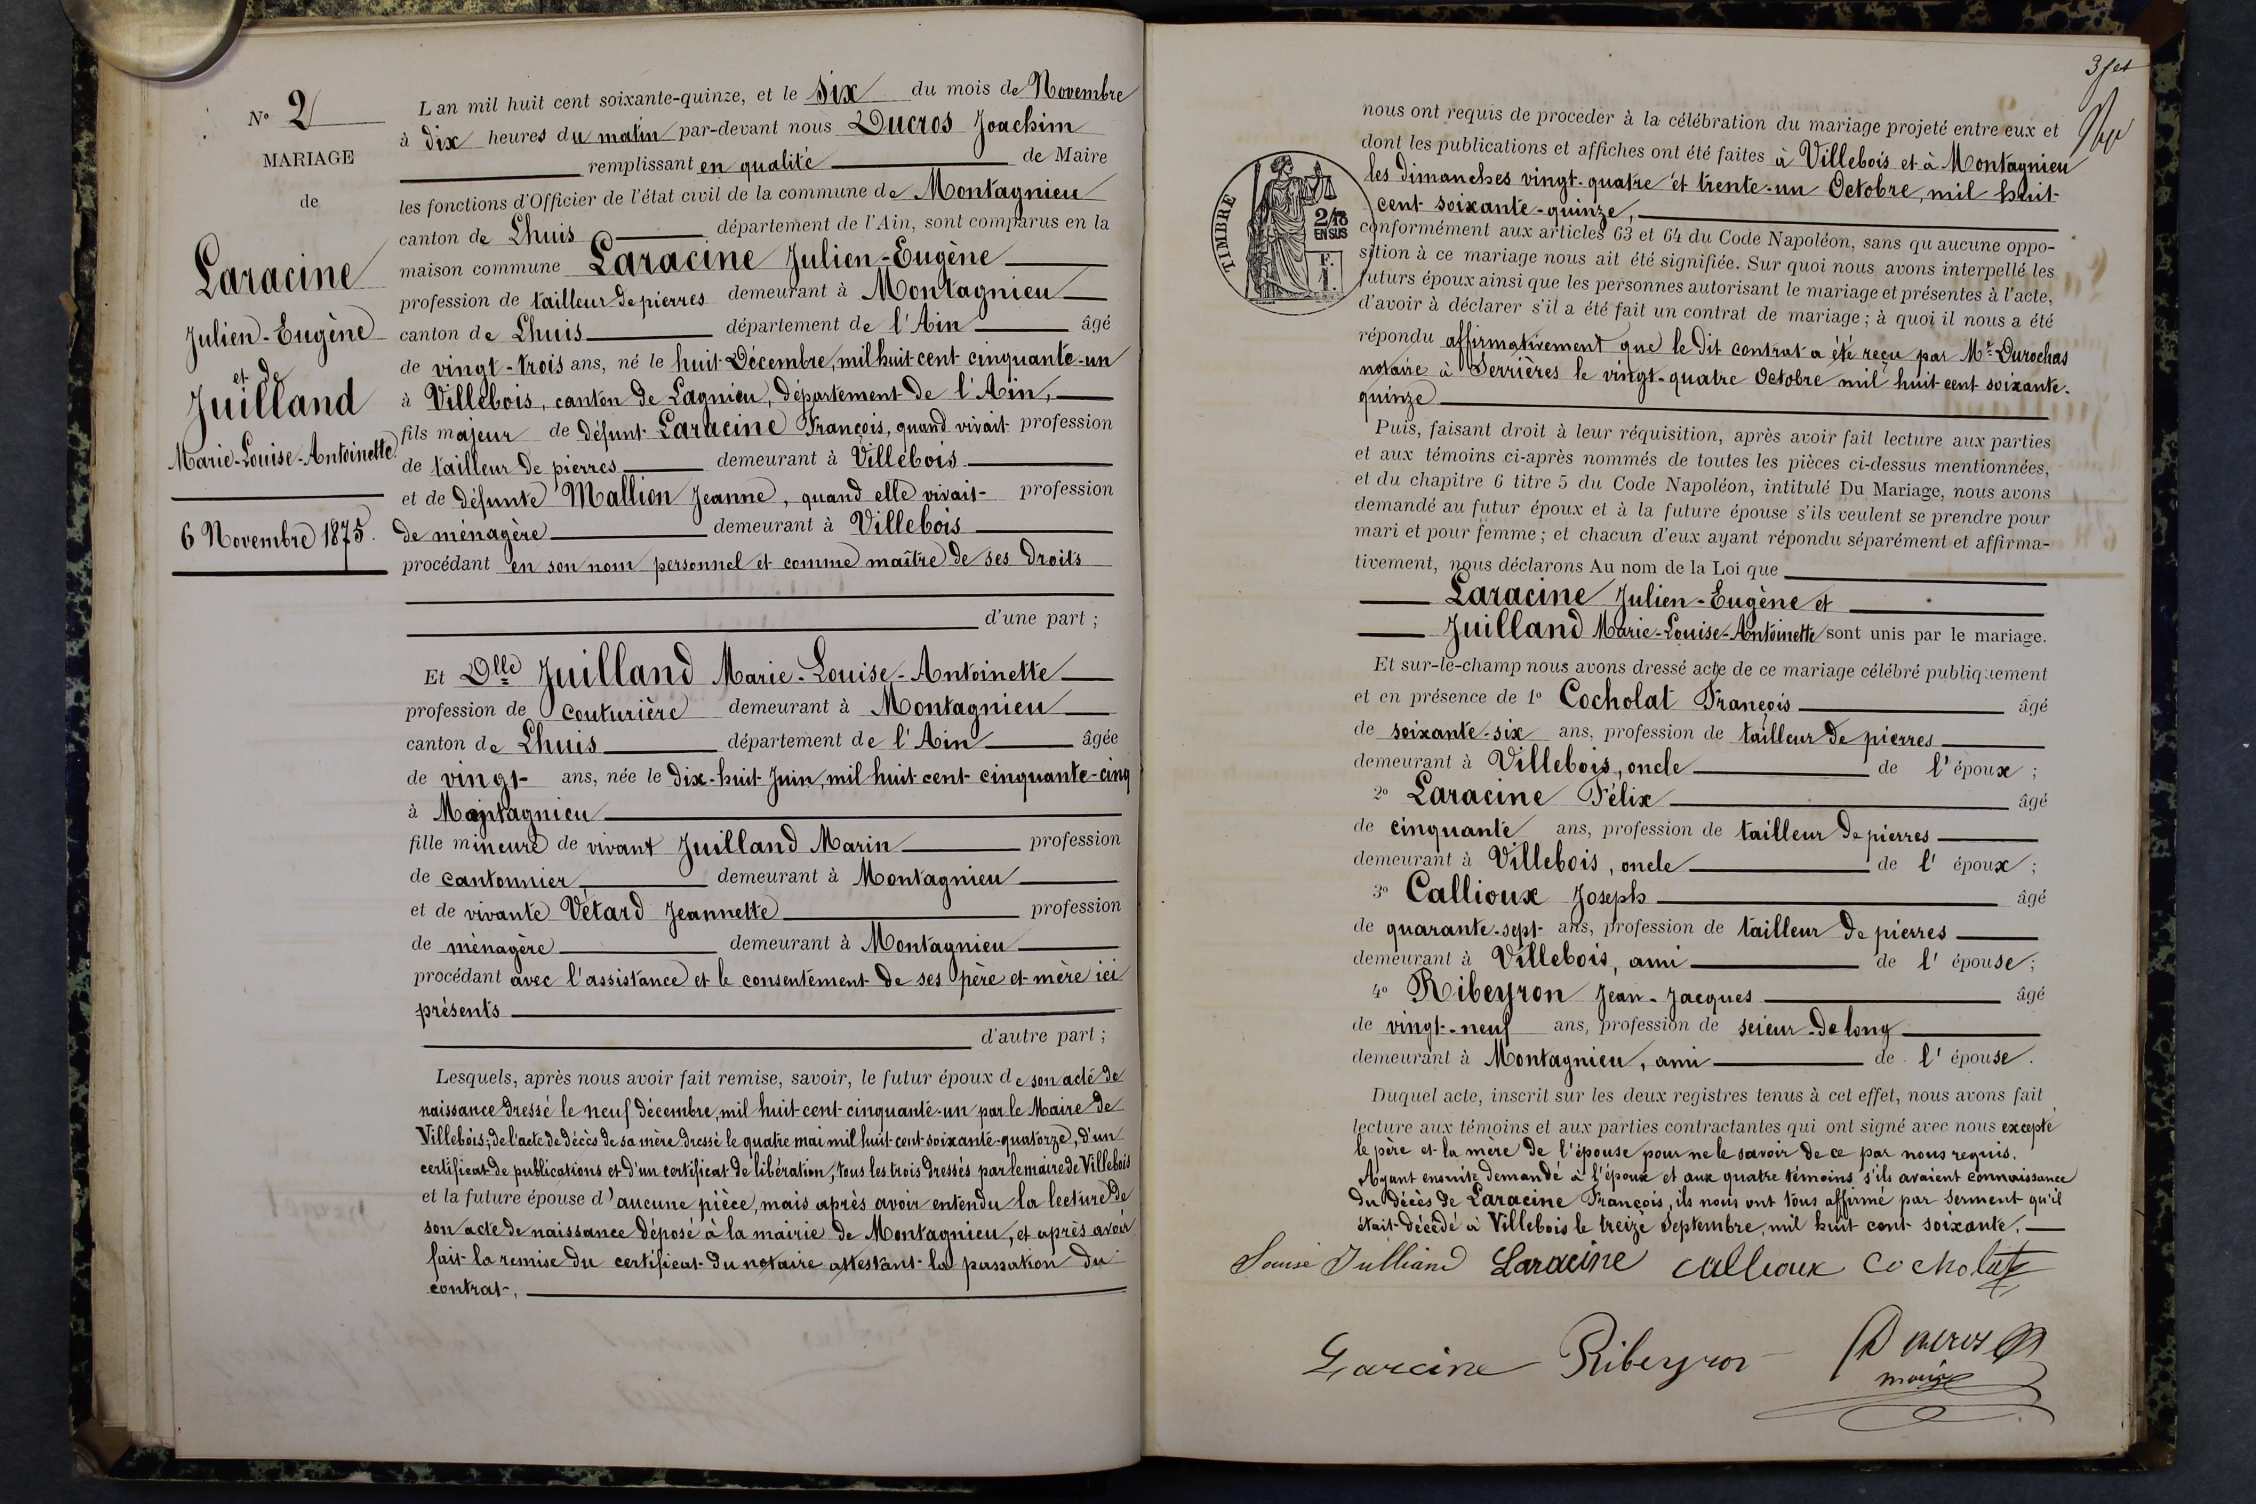 N° 2
MARIAGE
de
Laracine
Julien-Eugène
et de
Juilland
Marie-Louise-Antoinette
6 Novembre 1875.
L'an mil huit cent soixante-quinze, et le six du mois de Novembre
à dix heures du matin par-devant nous Ducros Joachim
remplissant en qualité de Maire
les fonctions d'Officier de l'état civil de la commune de Montagnieu
canton de Lhuis département de l'Ain, sont comparus en la
maison commune Laracine Julien-Eugène
profession de tailleur de pierres demeurant à Montagnieu
canton de Lhuis département de l'Ain âgé
de vingt-trois ans, né le huit Décembre, mil huit cent cinquante-un
à Villebois, canton de Lagnieu, département de l'Ain,
fils majeur de défunt Laracine François, quand vivait profession
de tailleur de pierres demeurant à Villebois
et de défunte Mallion Jeanne, quand elle vivait profession
de ménagère demeurant à Villebois
procédant en son nom personnel et comme maître de ses droits
d'une part ;
Et Dlle Juilland Marie-Louise-Antoinette
profession de couturière demeurant à Montagnieu
canton de Lhuis département de l'Ain âgée
de vingt ans, née le dix-huit Juin, mil huit cent cinquante-cinq
à Montagnieu
fille mineure de vivant Juilland Marin profession
de cantonnier demeurant à Montagnieu
et de vivante Vétard Jeannette profession
de ménagère demeurant à Montagnieu
procédant avec l'assistance et le consentement de ses père et mère ici
présents
d'autre part ;
Lesquels, après nous avoir fait remise, savoir, le futur époux de son acte de
naissance dressé le neuf décembre, mil huit cent cinquante-un par le Maire de
Villebois; de l'acte de décès de sa mère dressé le quatre mai mil huit cent soixante-quatorze, d'un
certificat de publications et d'un certificat de libération, tous les trois dressés par le maire de Villebois
et la future épouse d'aucune pièce, mais après avoir entendu la lecture de
son acte de naissance déposé à la mairie de Montagnieu, et après avoir
fait la remise du certificat du notaire attestant la passation du
contrat.
nous ont requis de procéder à la célébration du mariage projeté entre eux et
dont les publications et affiches ont été faites à Villebois et à Montagnieu
les dimanches vingt-quatre et trente-un Octobre, mil huit
cent soixante-quinze,
TIMBRE
2/10
EN SUS
conformément aux articles 63 et 64 du Code Napoléon, sans qu'aucune oppo-
sition à ce mariage nous ait été signifiée. Sur quoi nous avons interpellé les
futurs époux ainsi que les personnes autorisant le mariage et présentes à l'acte,
d'avoir à déclarer s'il a été fait un contrat de mariage ; à quoi il nous a été
répondu affirmativement que le dit contrat a été reçu par Mr Durochas
notaire à Serrières le vingt-quatre Octobre mil huit cent soixante-
quinze
Puis, faisant droit à leur réquisition, après avoir fait lecture aux parties
et aux témoins ci-après nommés de toutes les pièces ci-dessus mentionnées,
et du chapitre 6 titre 5 du Code Napoléon, intitulé Du Mariage, nous avons
demandé au futur époux et à la future épouse s'ils veulent se prendre pour
mari et pour femme ; et chacun d'eux ayant répondu séparément et affirma-
tivement, nous déclarons Au nom de la Loi que
Laracine Julien-Eugène et
Juilland Marie-Louise-Antoinette sont unis par le mariage.
Et sur-le-champ nous avons dressé acte de ce mariage célébré publiquement
et en présence de 1° Cocholat François âgé
de soixante-six ans, profession de tailleur de pierres
demeurant à Villebois, oncle de l'époux ;
2° Laracine Félix âgé
de cinquante ans, profession de tailleur de pierres
demeurant à Villebois, oncle de l'époux ;
3° Callioux Joseph âgé
de quarante-sept ans, profession de tailleur de pierres
demeurant à Villebois, ami de l'épouse ;
4° Ribeyron Jean-Jacques âgé
de vingt-neuf ans, profession de scieur de long
demeurant à Montagnieu, ami de l'épouse.
Duquel acte, inscrit sur les deux registres tenus à cet effet, nous avons fait
lecture aux témoins et aux parties contractantes qui ont signé avec nous excepté
le père et la mère de l'épouse pour ne le savoir de ce par nous requis.
Ayant ensuite demandé à l'époux et aux quatre témoins s'ils avaient connaissance
du décès de Laracine François, ils nous ont tous affirmé par serment qu'il
était décédé à Villebois le treize Septembre, mil huit cent soixante.
Louise Julliand Laracine Callioux Cocholat
Laracine Ribeyron Ducros
maire